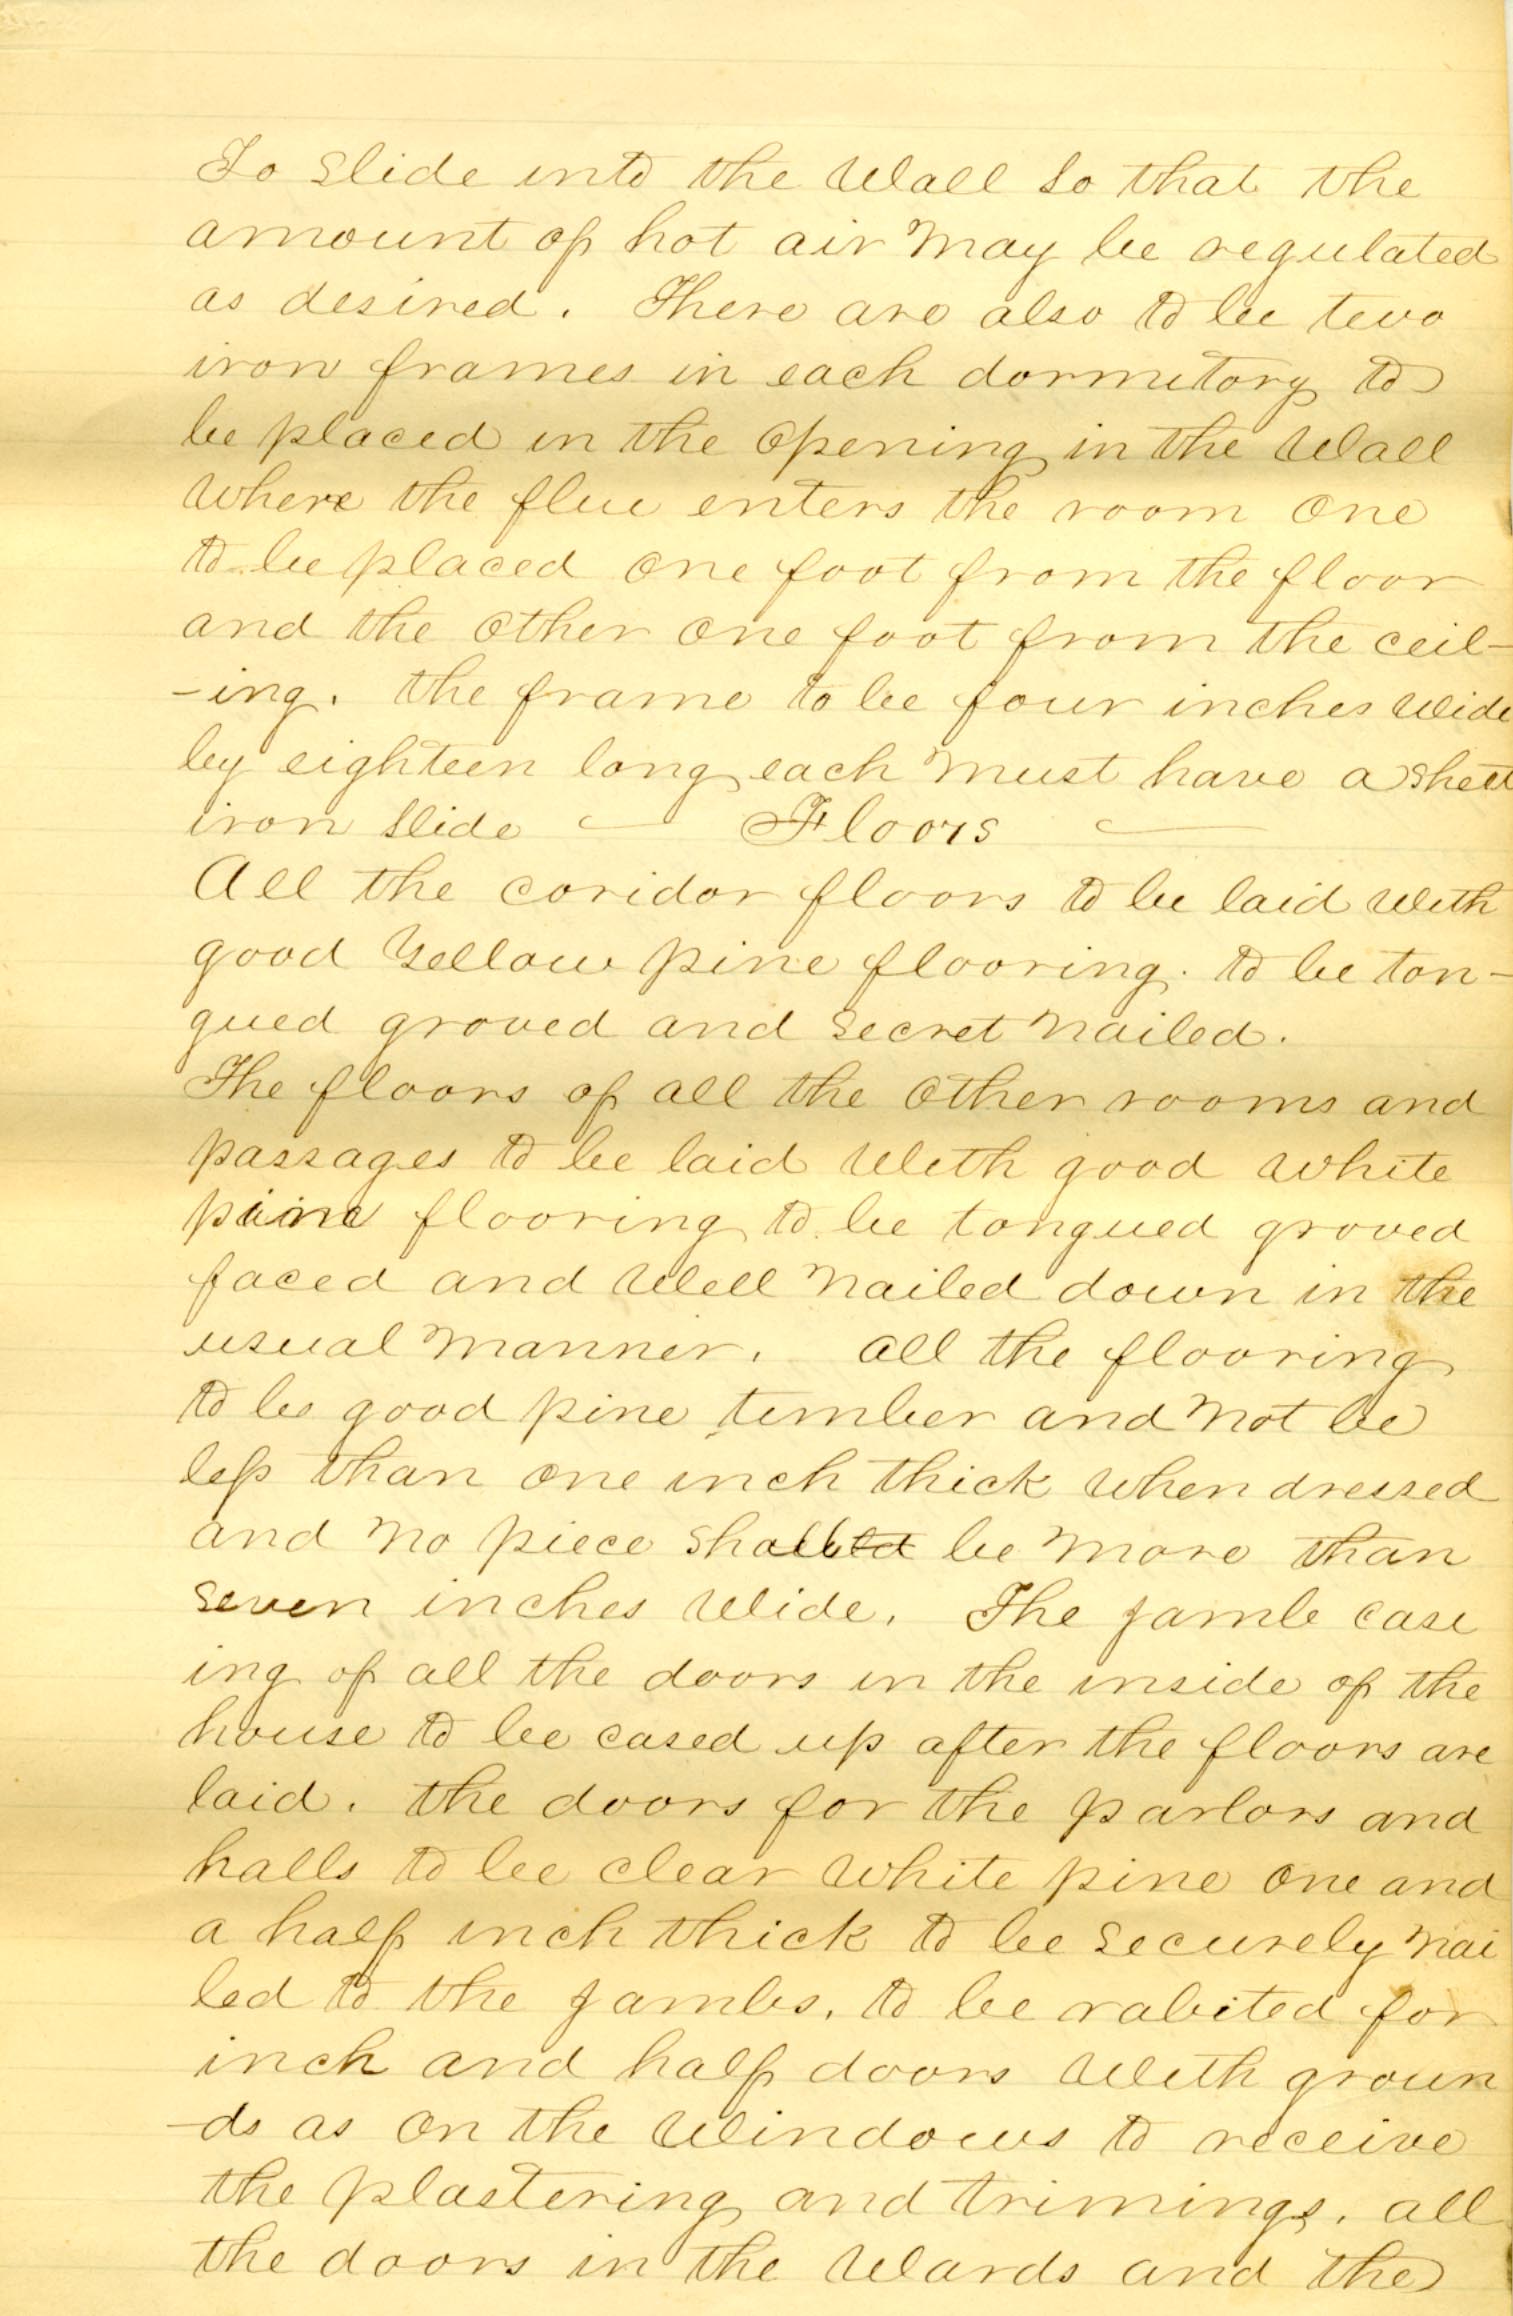 To Slide into the Wall So that the
amount of hot air may be regulated
as desired. There are also to be two
iron frames in each dormitory to
be placed in the Opening in the Wall
Where the flue enters the room One
to be placed One foot from the floor
and the Other One foot from the ceil-
-ing. the frame to be four inches Wide
by eighteen long each must have a Sheet
iron Slide — Floors —
All the coridor floors to be laid With
good Yellow pine flooring. to be ton-
gued groved and Secret Nailed.
The floors of all the Other rooms and
passages to be laid With good White
pine flooring to be tongued groved
faced and Well Nailed down in the
usual Manner. All the flooring
to be good pine timber and Not be
less than One inch thick When dressed
and No piece Shall be More than
Seven inches Wide. The jamb case
ing of all the doors in the inside of the
house to be cased up after the floors are
laid. the doors for the parlors and
halls to be clear White pine One and
a half inch thick to be Securely Nai
led to the jambs. to be rabited for
inch and half doors With groun
-ds as On the Windows to receive
the plastering and trimings. all
the doors in the Wards and the